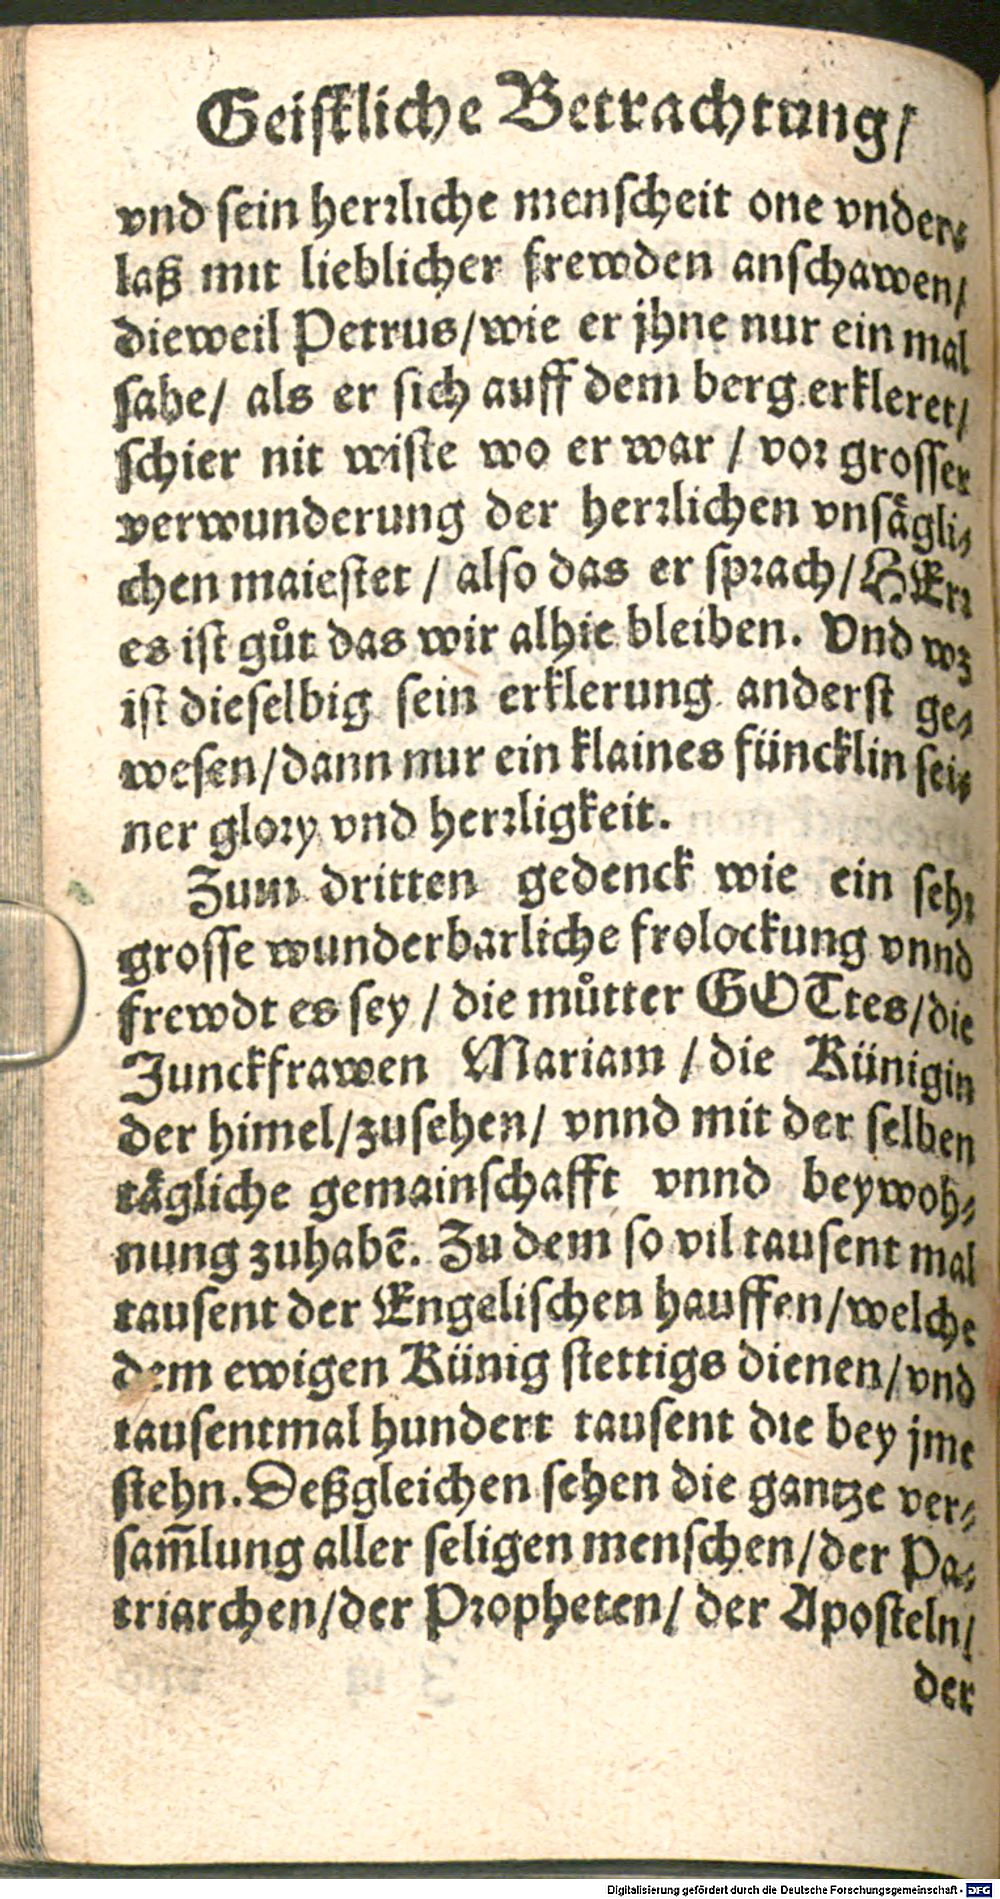 Geistliche Betrachtung/
vnd sein herꝛliche menscheit one vnder⸗
laß mit lieblicher frewden anschawen/
dieweil Petrus/wie er jhne nur ein mal
sahe/ als er sich auff dem berg erkleret/
schier nit wiste wo er war / voꝛ grosser
verwunderung der herꝛlichen vnsägli⸗
chen maiestet / also das er spꝛach/HErꝛ
es ist gůt das wir alhie bleiben. Vnd wz
ist dieselbig sein erklerung anderst ge⸗
wesen/dann nur ein klaines füncklin sei⸗
ner gloꝛy vnd herꝛligkeit.
Zum dritten gedenck wie ein sehꝛ
grosse wunderbarliche frolockung vnnd
frewdt es sey / die můtter GOTtes/die
Junckfrawen Mariam / die Künigin
der himel/zusehen/ vnnd mit der selben
tägliche gemainschafft vnnd beywoh⸗
nung zuhabē. Zu dem so vil tausent mal
tausent der Engelischen hauffen/welche
dem ewigen Künig stettigs dienen/vnd
tausentmal hundert tausent die bey jme
stehn. Deßgleichen sehen die gantze ver⸗
sam̄lung aller seligen menschen/der Pa⸗
triarchen/der Pꝛopheten/ der Aposteln/
der
Digitalisierung gefördert durch die Deutsche Forschungsgemeinschaft - DFG